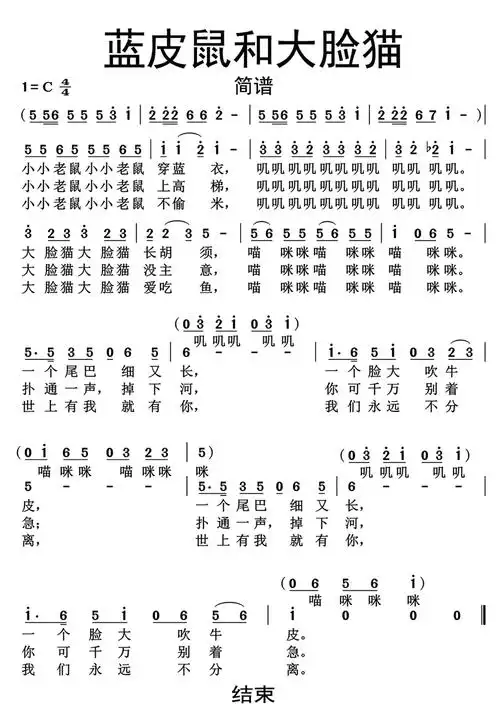 蓝皮鼠和大脸猫
简谱
1=C 4/4
(5 56 5 5 5 3 i | 2 222 6 6 2 - | 5 56 5 5 5 3 i | 2 222 6 7 i -)
5 5 6 5 5 5 6 5 | i i 2 i - | 3 3 3 3 3 3 3 2 | 3 2 ♭2 i -
小小老鼠小小老鼠 穿蓝 衣, 叽叽叽叽叽叽叽叽 叽叽 叽叽。
小小老鼠小小老鼠 上高 梯, 叽叽叽叽叽叽叽叽 叽叽 叽叽。
小小老鼠小小老鼠 不偷 米, 叽叽叽叽叽叽叽叽 叽叽 叽叽。
3 2 3 3 2 3 | 2 2 3 5 - | 5 6 5 6 5 6 | i 6 5 -
大 脸猫大 脸猫 长胡 须, 喵 咪咪喵 咪咪 喵 咪咪。
大 脸猫大 脸猫 没主 意, 喵 咪咪喵 咪咪 喵 咪咪。
大 脸猫大 脸猫 爱吃 鱼, 喵 咪咪喵 咪咪 喵 咪咪。
(0 3 2 i 0 3 i)
叽叽叽 叽叽
5· 5 3 5 0 6 5 | 6 - - - | i· 6 5 i 0 3 2 3
一个尾巴 细又 长, 一个脸大 吹牛
扑通一声, 掉下 河, 你可千万 别着
世上有我 就有 你, 我们永远 不分
(0 i 6 5 0 3 2 3 | 5) (0 3 2 i 0 3 i)
喵 咪咪 喵咪咪 咪 叽叽叽 叽叽
5 - - - | 5· 5 3 5 0 6 5 | 6 - - -
皮, 一个尾巴 细又 长,
急; 扑通一声, 掉下 河,
离, 世上有我 就有 你,
(0 6 5 6 i)
喵 咪 咪 咪
i· 6 5 i 0 6 6 | i 0 0 0
一 个 脸 大 吹 牛 皮。
你 可 千 万 别 着 急。
我 们 永 远 不 分 离。
结束